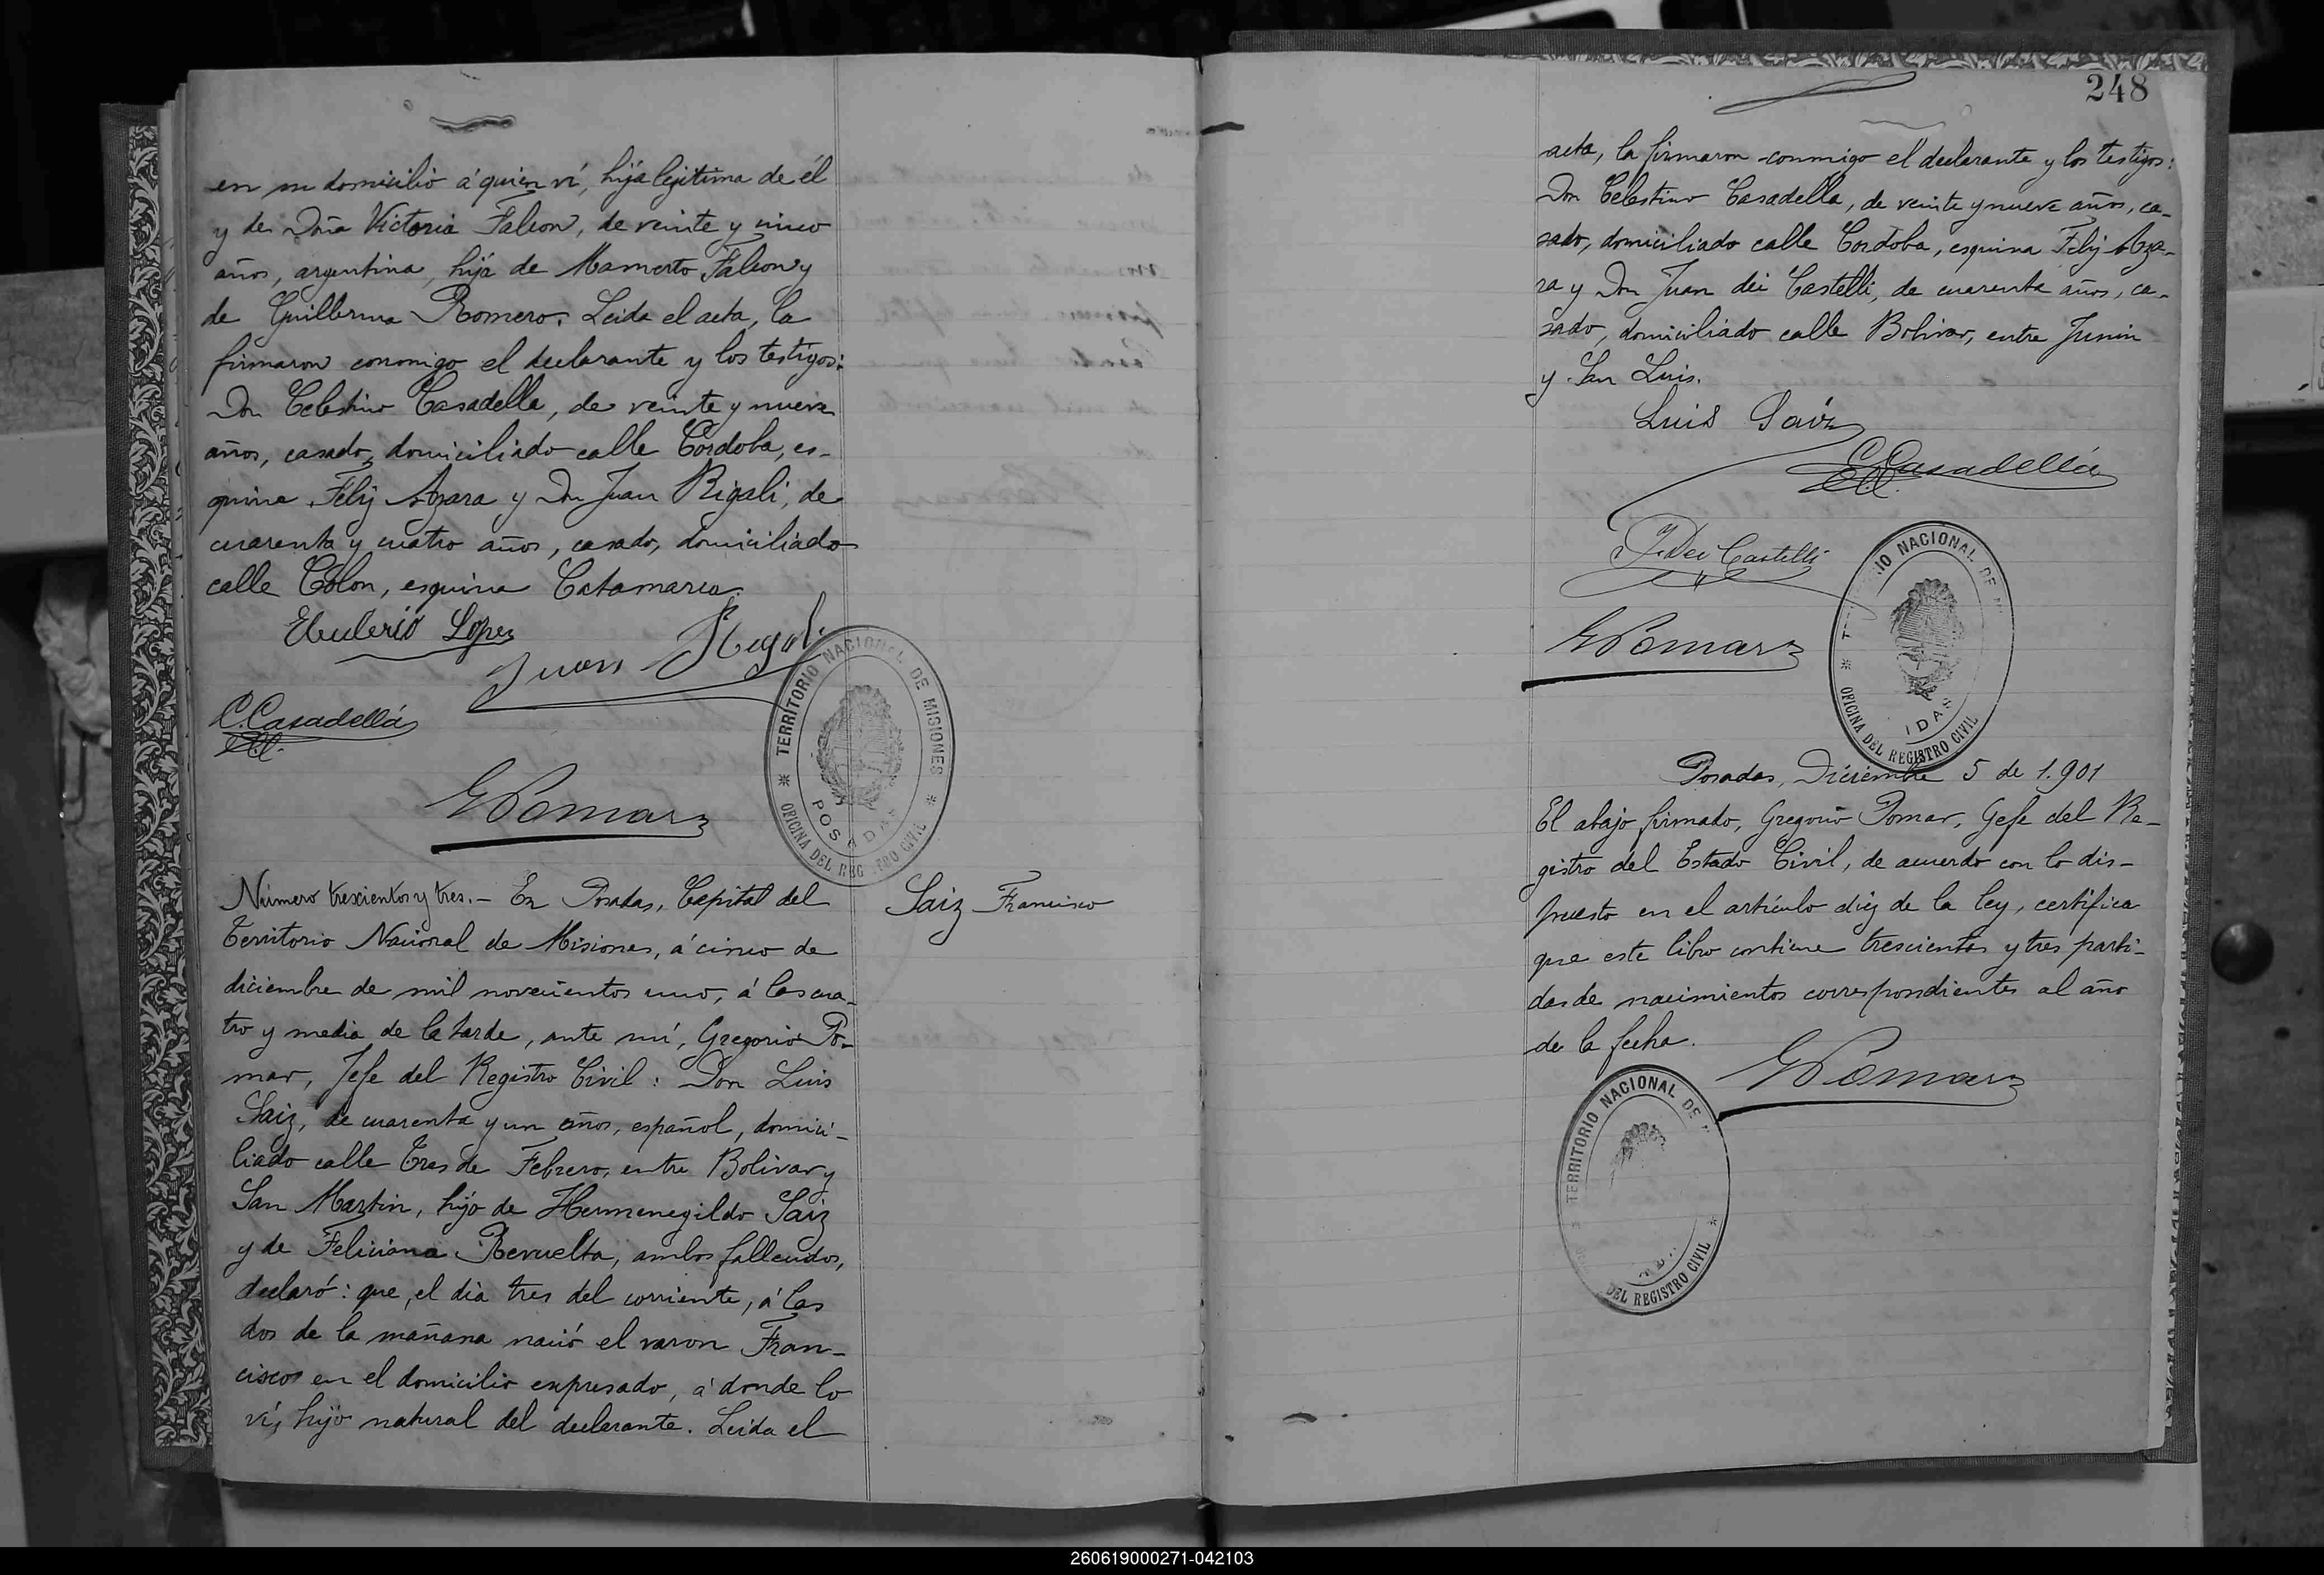 en su domicilio á quien ví, hija legitima de él
y de Doña Victoria Falcon, de veinte y cinco
años, argentina, hija de Mamerto Falcon y
de Guillerma Romero. Leida el acta, la
firmaron conmigo el declarante y los testigos:
Don Celestino Casadella, de veinte y nueve
años, casado, domiciliado calle Córdoba, es-
quina Felij Azara y Don Juan Rigali, de
cuarenta y cuatro años, casado, domiciliado
calle Colon, esquina Catamarca.
Eleulerio Lopez
Juan Rigali
C. Casadellá
GPomar
TERRITORIO NACIONAL DE MISIONES
POSADAS
OFICINA DEL REGISTRO CIVIL
Número trescientos y tres.- En Posadas, Capital del
Territorio Nacional de Misiones, á cinco de
diciembre de mil novecientos uno, á las cua-
tro y media de la tarde, ante mí, Gregorio Po-
mar, Jefe del Registro Civil: Don Luis
Saiz, de cuarenta y un años, español, domici-
liado calle Tres de Febrero, entre Bolivar y
San Martin, hijo de Hermenegildo Saiz
y de Feliciana Revuelta, ambos fallecidos,
declaró: que, el dia tres del corriente, á las
dos de la mañana nació el varon Fran-
cisco en el domicilio expresado, á donde lo
ví, hijo natural del declarante. Leida el
Saiz Francisco
248
acta, la firmaron conmigo el declarante y los testigos:
Don Celestino Casadella, de veinte y nueve años, ca-
sado, domiciliado calle Cordoba, esquina Felij Aza-
ra y Don Juan dei Castelli, de cuarenta años, ca-
sado, domiciliado calle Bolivar, entre Junin
y San Luis.
Luis Saiz
C. Casadellá
J. Dei Castelli
GPomar
NACIONAL DE
OFICINA DEL REGISTRO CIVIL
Posadas, Diciembre 5 de 1.901
El abajo firmado, Gregorio Pomar, Gefe del Re-
gistro del Estado Civil, de acuerdo con lo dis-
puesto en el artículo diez de la ley, certifica
que este libro contiene trescientos y tres parti-
das de nacimientos correspondientes al año
de la fecha.
GPomar
TERRITORIO NACIONAL DE
DEL REGISTRO CIVIL
260619000271-042103